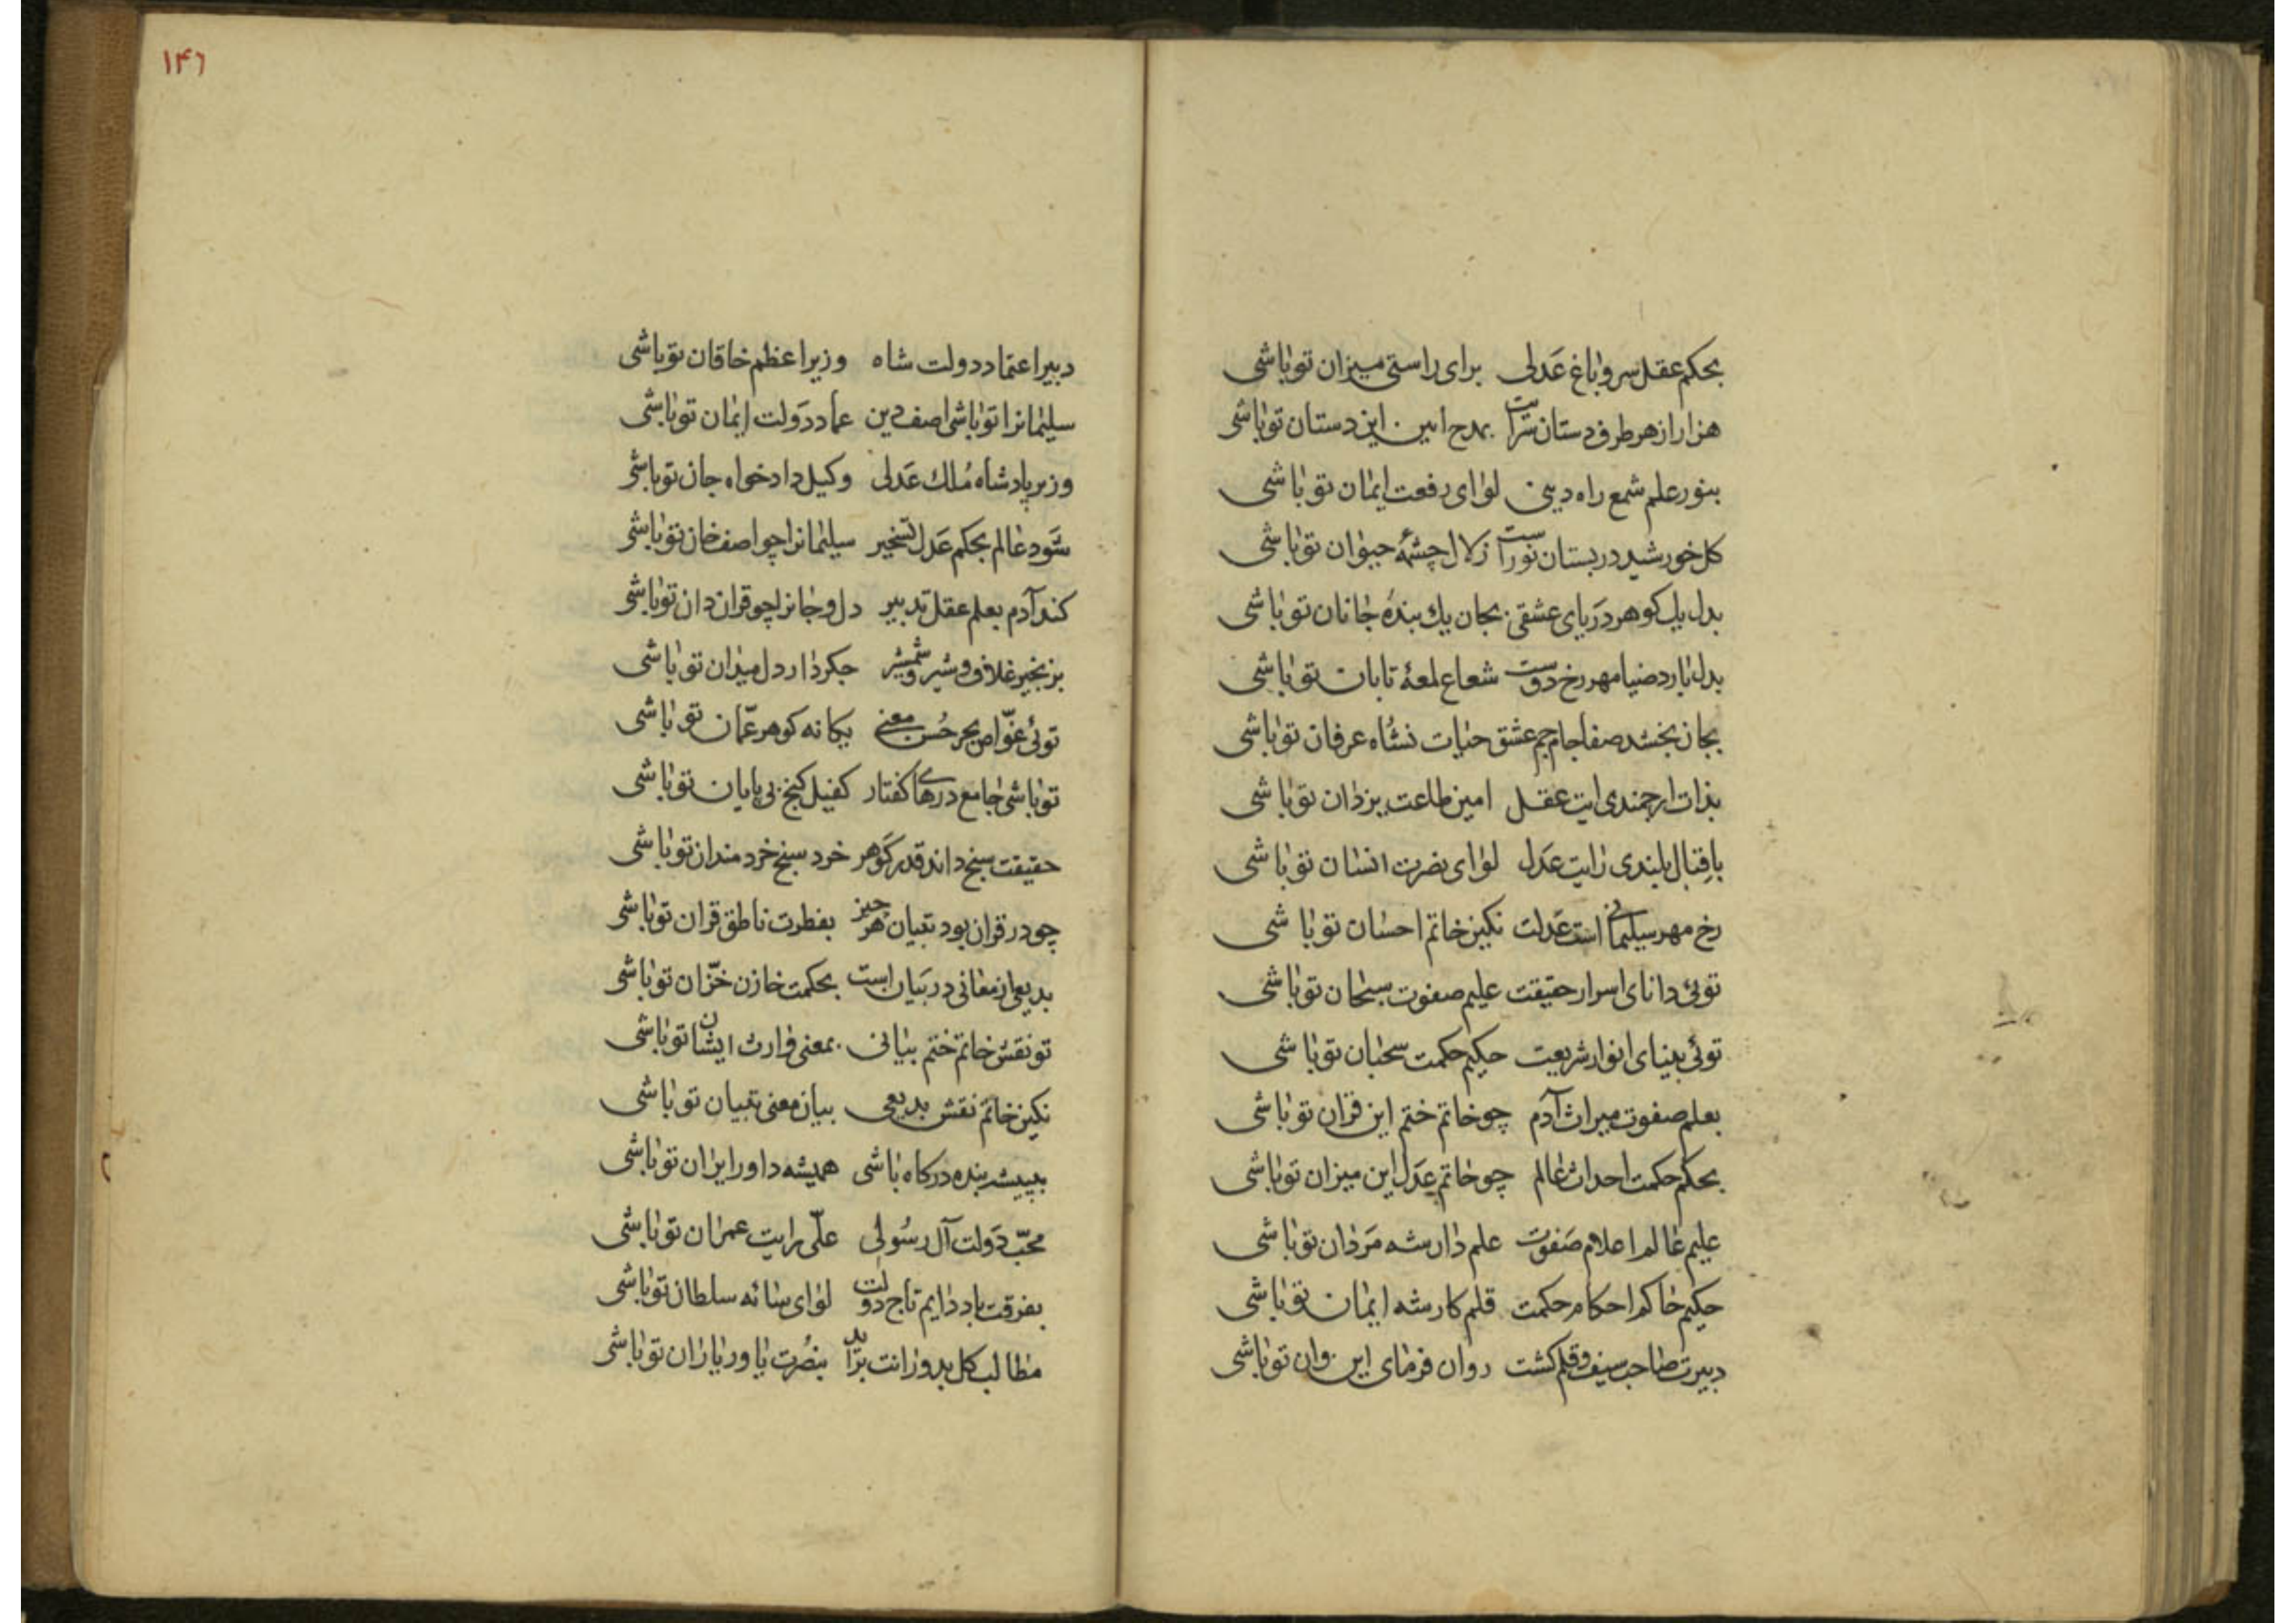 بحکم عقل سرو باغ عدلی برای راستی میزان تو باشی
هزار از هر طرف دستان سراست بمدح این دستان تو باشی
بنور علم شمع راه دینی لوای رفعت ایمان تو باشی
کل خورشید در بستان نوراست زلال چشمهٔ حیوان تو باشی
بدل یک کوهر دریای عشقی بجان یک بندهٔ جانان تو باشی
بدل بارد ضیا مهر رخ دوست شعاع لمعهٔ تابان تو باشی
بجان بخشد صفا جام جم عشق حیات نشأه عرفان تو باشی
بذات ارجمندی ایت عقل امین طاعت یزدان تو باشی
باقبال بلندی رایت عدل لوای نصرت انسان تو باشی
رخ مهر سلیمانی است عدلت نکین خاتم احسان تو باشی
توئی دانای اسرار حقیقت علیم صفوت سبحان تو باشی
توئی بینای انوار شریعت حکیم حکمت سحبان تو باشی
بعلم صفوت میراث آدم چو خاتم ختم این قران تو باشی
بحکم حکمت احداث عالم چو خاتم عدل این میزان تو باشی
علیم عالم اعلام صفوت علم دار شه مردان تو باشی
حکیم حاکم احکام حکمت قلم کار شه ایمان تو باشی
دبیرت صاحب سیف و قلم کشت روان فرمای این وان تو باشی
۱۴۶
دبیر اعتماد دولت شاه وزیر اعظم خاقان تو باشی
سلیمانرا تو باشی اصف دین عماد دولت ایمان تو باشی
وزیر پادشاه ملک عدلی وکیل دادخواه جان تو باشی
شود عالم بحکم عدل تسخیر سلیمانرا چو اصف خان تو باشی
کند آدم بعلم عقل تدبیر دل و جانرا چو قران دان تو باشی
بزنجیر غلاف و شیر و شمشیر جکر دار دل میدان تو باشی
توئی غوّاص بحر حسن معنی یکانه کوهر عمّان تو باشی
تو باشی جامع درهای کفتار کفیل کنج بی پایان تو باشی
حقیقت سنج داند قدر کوهر خرد سنج خردمندان تو باشی
چو در قران بود تبیان هر چیز بفطرت ناطق قران تو باشی
بدیعی از معانی در بیان است بحکمت خازن خزّان تو باشی
تو نقش خاتم ختم بیانی بمعنی وارث ایشان تو باشی
نکین خاتم نقش بدیعی بیان معنی تبیان تو باشی
بنده درکاه باشی همیشه داور ایران تو باشی
محبّ دولت آل رسولی علّی رایت عمران تو باشی
بفرقت باد دایم تاج دولت لوای سائه سلطان تو باشی
مطالب کل بدورانت براید بنصرت یاور یاران تو باشی